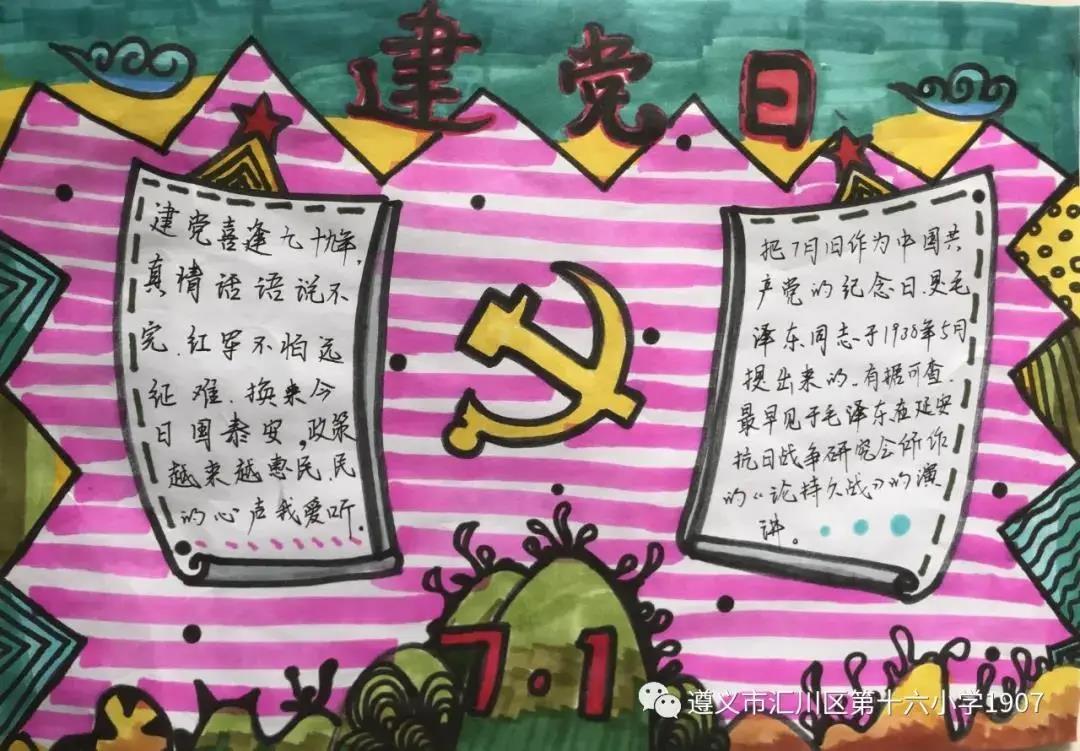 建党日
建党喜逢九十九年,
真情话语说不
完.红军不怕远
征难.换来今
日国泰安,政策
越来越惠民.民
的心声我爱听.
把7月1日作为中国共
产党的纪念日.是毛
泽东同志于1938年5月
提出来的.有据可查.
最早见于毛泽东在延安
抗日战争研究会所作
的《论持久战》的演
讲。
7.1
遵义市汇川区第十六小学1907